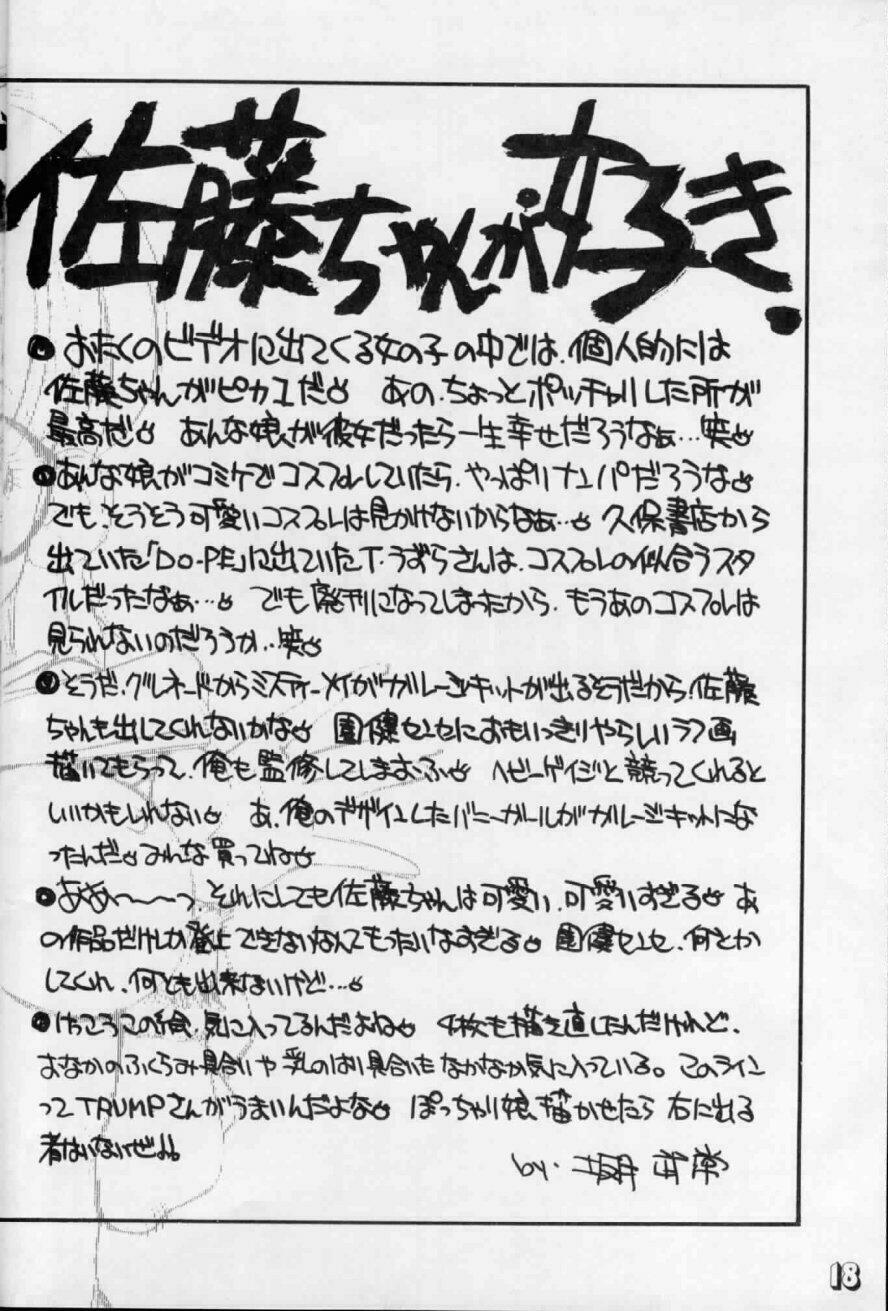 佐藤ちゃんが好き.
●おたくのビデオに出てくる女の子の中では、個人的には
佐藤ちゃんがピカ1だ。あの、ちょっとポッチャリした所が
最高だ。あんな娘が彼女だったら一生幸せだろうなぁ…笑。
●あんな娘がコミケでコスプレしていたら、やっぱりナンパだろうな。
でも、そうそう可愛いコスプレは見かけないからなぁ…。久保書店から
出ていた「DO-PE」に出ていたT・うずらさんは、コスプレの似合うスタ
イルだったなぁ…。でも廃刊になってしまったから、もうあのコスプレは
見られないのだろうか…笑。
●そうだ、グレネードからミスティーメイがガレージキットが出るそうだから、佐藤
ちゃんも出してくれないかな。園健センセにおもいっきりやらしいラフ画
描いてもらって、俺も監修してしまおふ。ヘビーゲイジと競ってくれると
いいかもしれない。あ、俺のデザインしたバニーガールがガレージキットにな
ったんだ。みんな買ってね。
●ああ〜〜〜っ、それにしても佐藤ちゃんは可愛い、可愛いすぎる。あ
の作品だけしか登上できないなんてもったいなすぎる。園健センセ、何とか
してくれ、何とも出来ないけど…。
●けっこうこの絵、気に入ってるんだよね。4枚も描き直したんだけれど、
おなかのふくらみ具合いや乳のはり具合いもなかなか気に入っている。このライン
ってTRUMPさんがうまいんだよな。ぽっちゃり娘、描かせたら右に出る
者はいないぜ。
by.
18